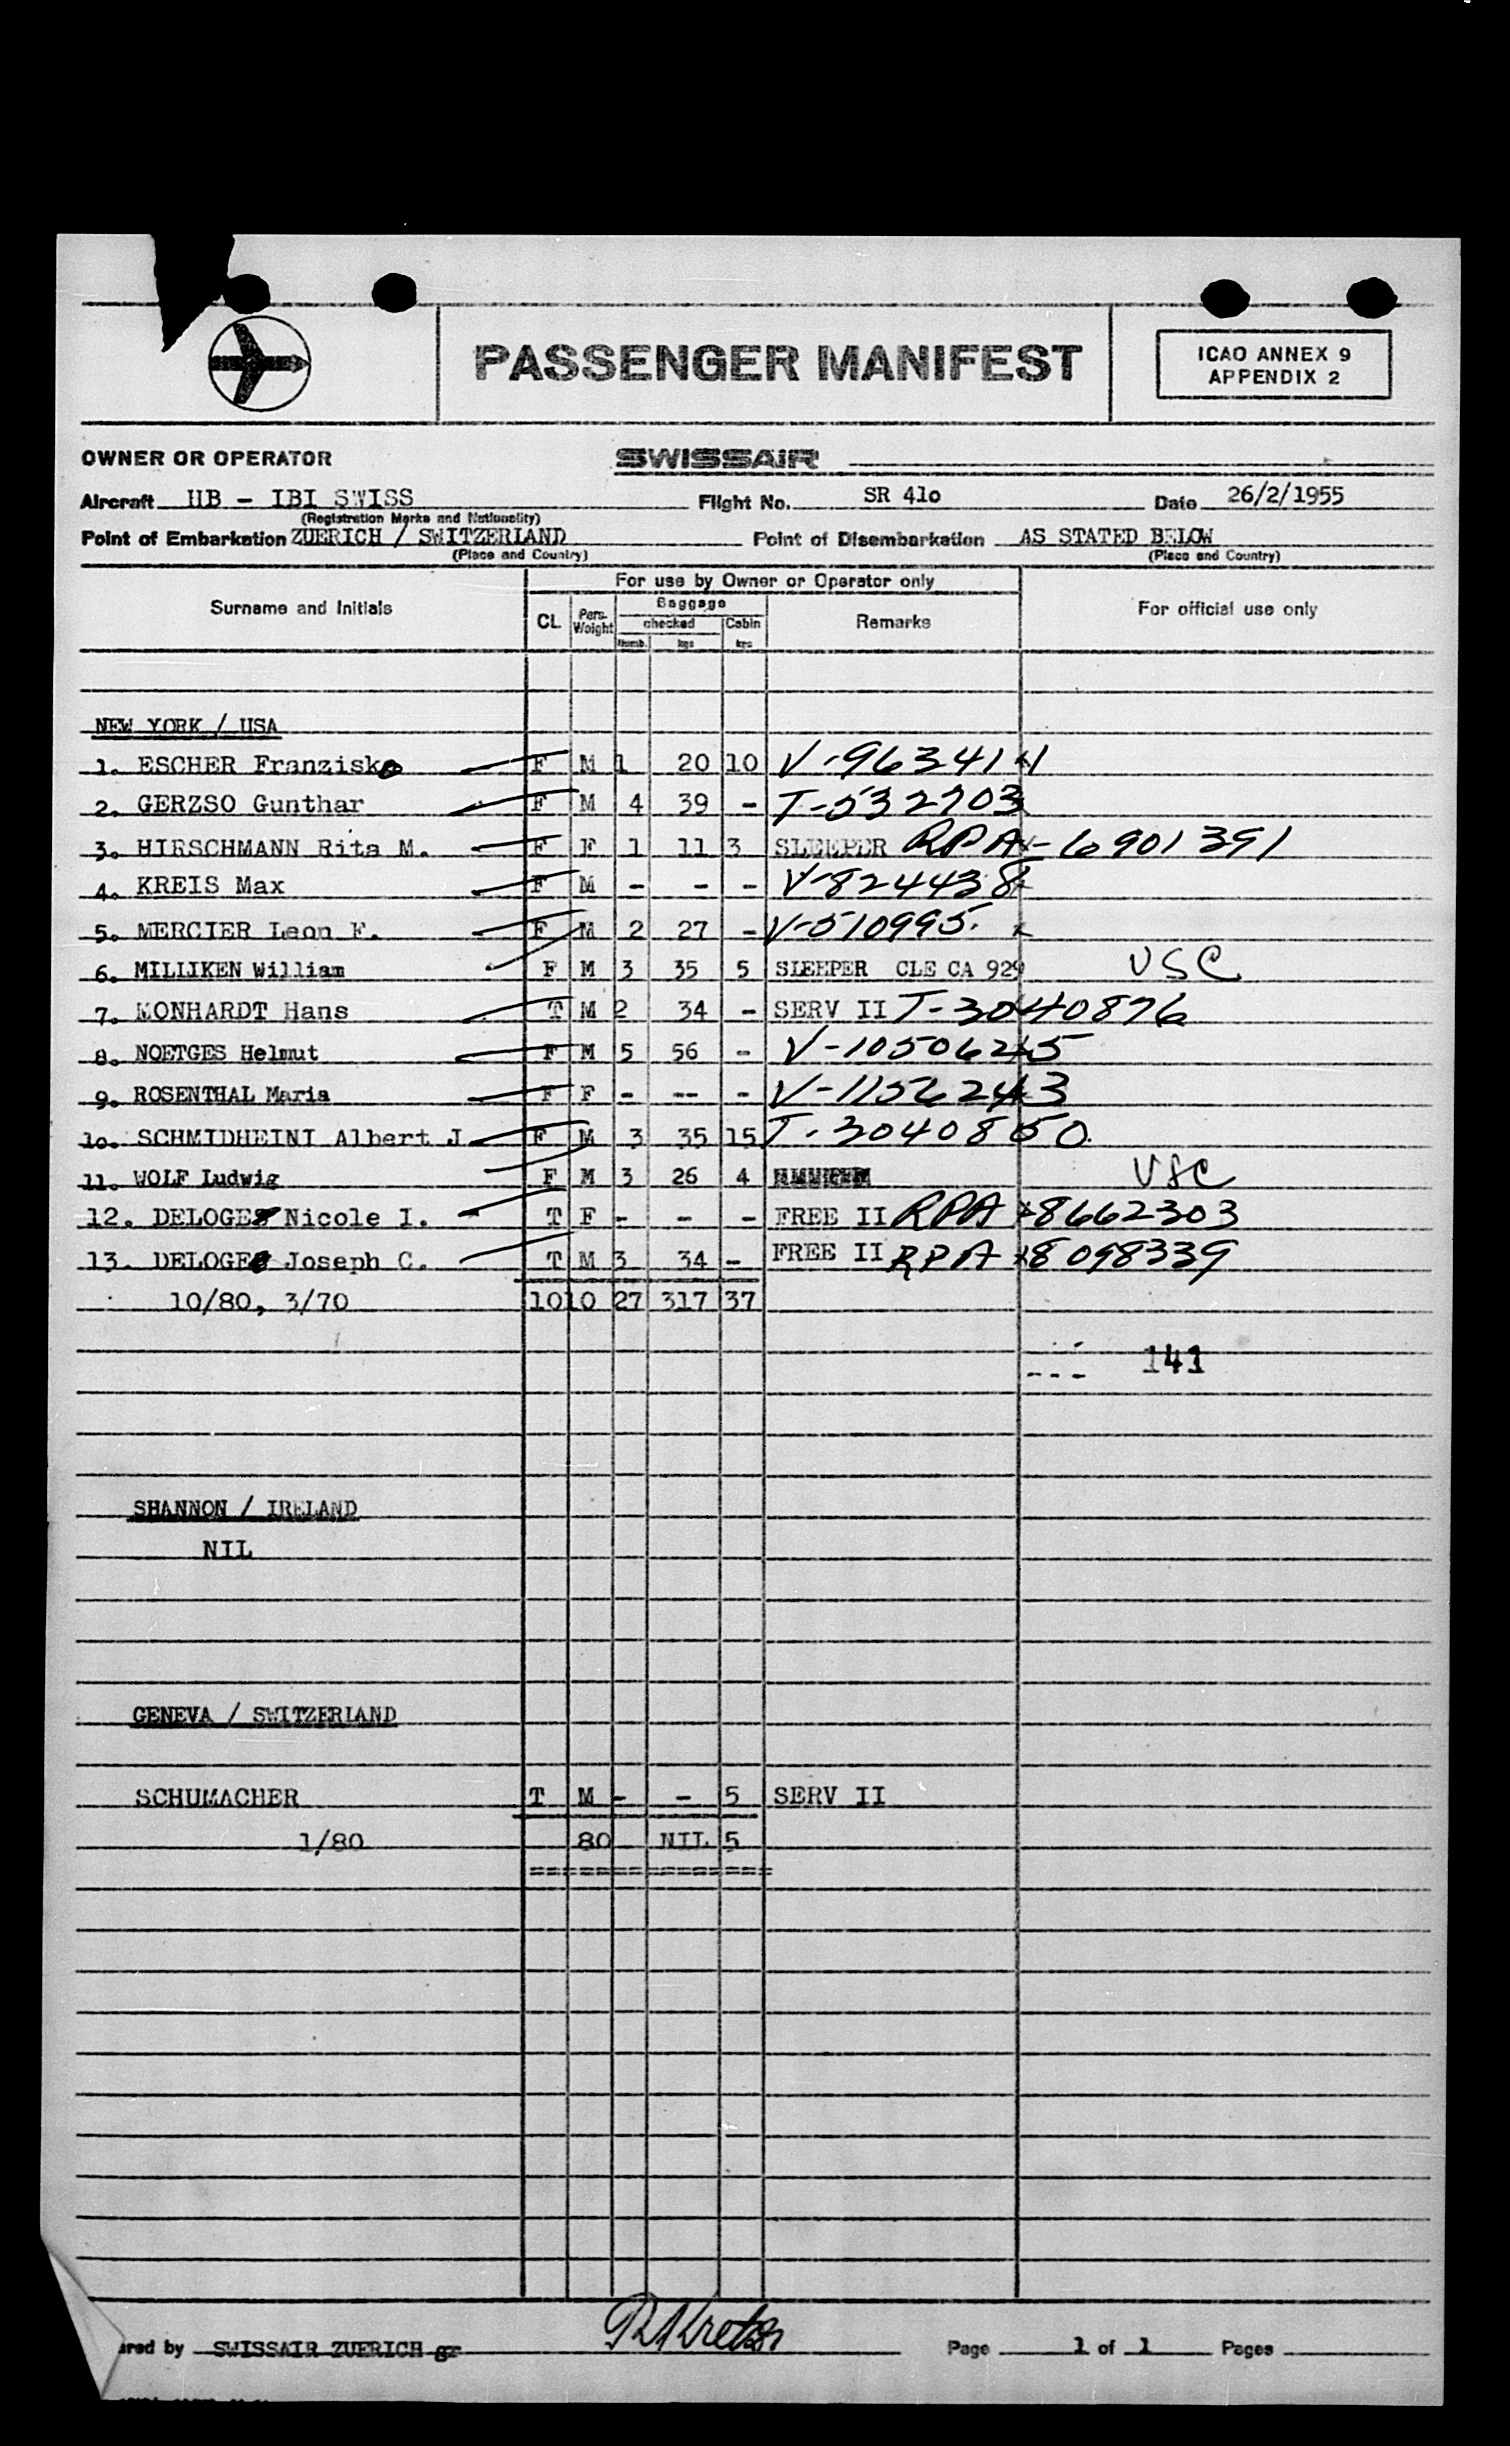 PASSENGER MANIFEST
ICAO ANNEX 9
APPENDIX 2
OWNER OR OPERATOR SWISSAIR
Aircraft HB - IBI SWISS Flight No. SR 41o Date 26/2/1955
(Registration Marks and Nationality)
Point of Embarkation ZUERICH / SWITZERLAND Point of Disembarkation AS STATED BELOW
(Place and Country) (Place and Country)
For use by Owner or Operator only
Surname and Initials CL Pers. Weight Baggage Remarks For official use only
checked Cabin
Numb. kgs kgs
NEW YORK / USA
1. ESCHER Franziska F M 1 20 10 V-9634141
2. GERZSO Gunthar F M 4 39 - T-532703
3. HIRSCHMANN Rita M. F F 1 11 3 SLEEPER RPA-6901391
4. KREIS Max F M - - - V-824438
5. MERCIER Leon F. F M 2 27 - V-510995.
6. MILLIKEN William F M 3 35 5 SLEEPER CLE CA 929 USC
7. MONHARDT Hans T M 2 34 - SERV II T-3040876
8. NOETGES Helmut F M 5 56 - V-10506245
9. ROSENTHAL Maria F F - -- -
10. SCHMIDHEINI Albert J F M 3 35 15 T-3040850.
11. WOLF Ludwig F M 3 26 4 USC
12. DELOGE Nicole I. T F - - - FREE II RPA 8662303
13. DELOGE Joseph C. T M 3 34 - FREE II RPA 8098339
10/80, 3/70 10 10 27 317 37
141
SHANNON / IRELAND
NIL
GENEVA / SWITZERLAND
SCHUMACHER T M - - 5 SERV II
1/80 80 NIL 5
===============
ared by SWISSAIR ZUERICH gr Page 1 of 1 Pages